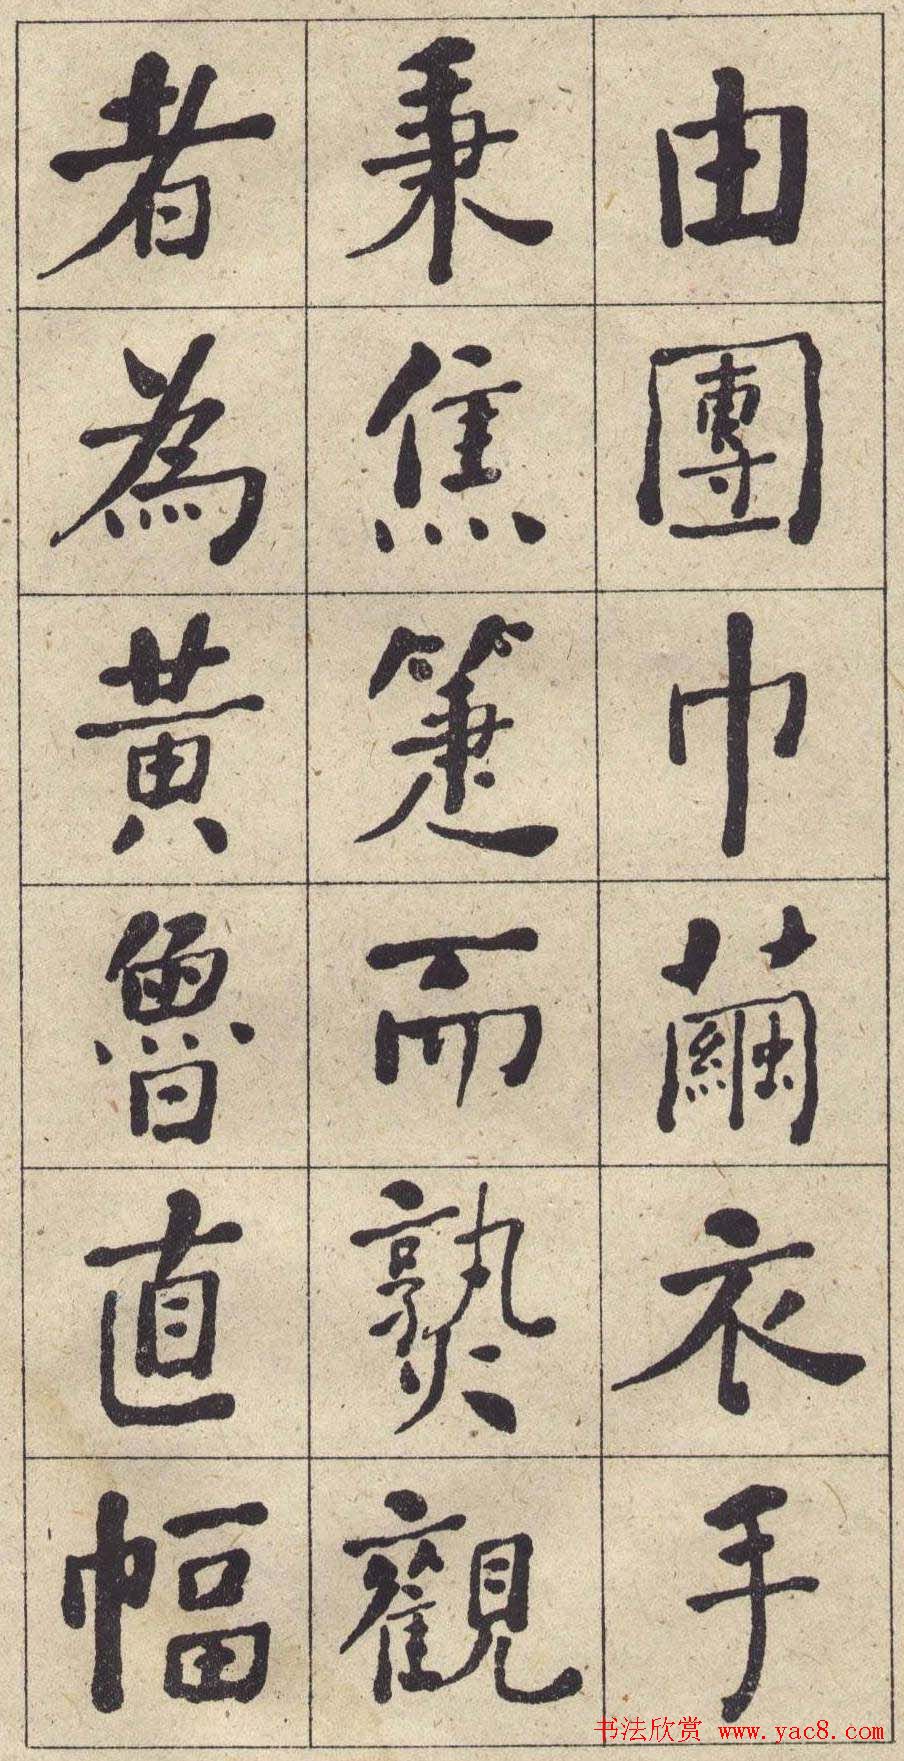 由團巾繭衣手
秉焦箑而熟觀
者為黃魯直幅
书法欣赏 www.yac8.com